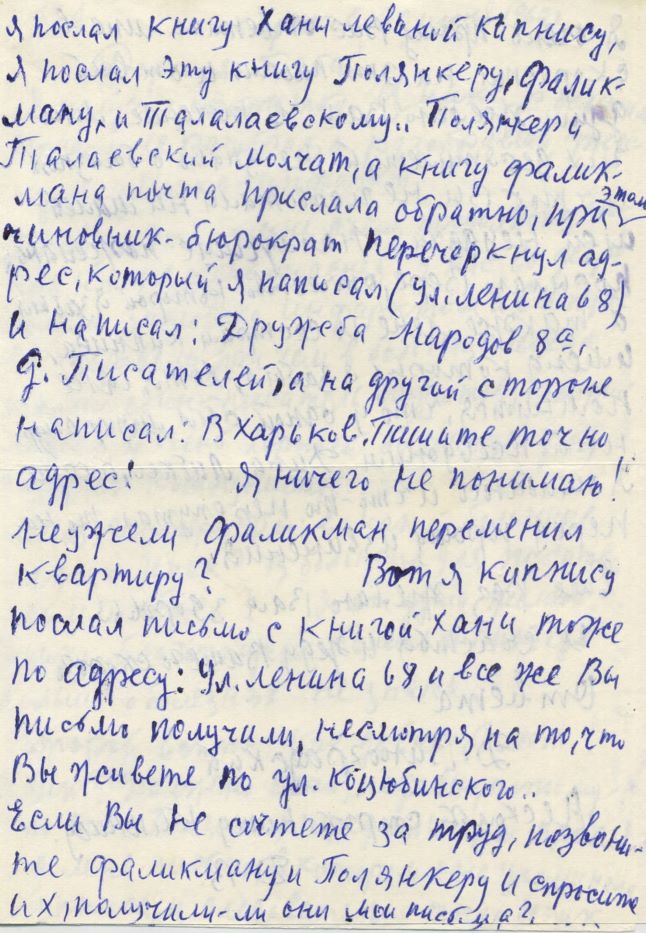 я послал книгу Хани левиной Кипнису,
я послал эту книгу Полянкеру, Фалик-
ману, и Талалаевскому.. Полянкер и
Талаевский молчат, а книгу Фалик-
мана почта прислала обратно, при этом
чиновник-бюрократ перечеркнул ад-
рес, который я написал (ул. Ленина 68)
и написал: Дружеба Народов 8а,
д. Писателей, а на другой стороне
написал: В Харьков. Пишите точно
адрес! Я ничего не понимаю!
Неужели Фаликман переменил
квартиру? Вот я Кипнису
послал письмо с книгой Хани тоже
по адресу: Ул. Ленина 68, и все же Вы
письмо получили, несмотря на то, что
Вы живете по ул. Коцюбинского..
Если Вы не сочтете за труд, позвони-
те Фаликману и Полянкеру и спросите
их, получили-ли они мои письма?